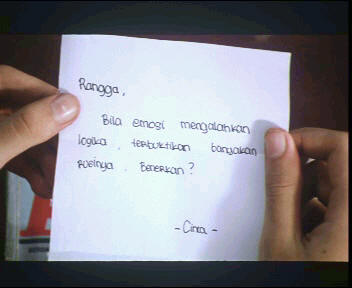 Rangga,
Bila emosi mengalahkan
logika, terbuktikan banyakan
ruginya. Benerkan?
- Cinta -